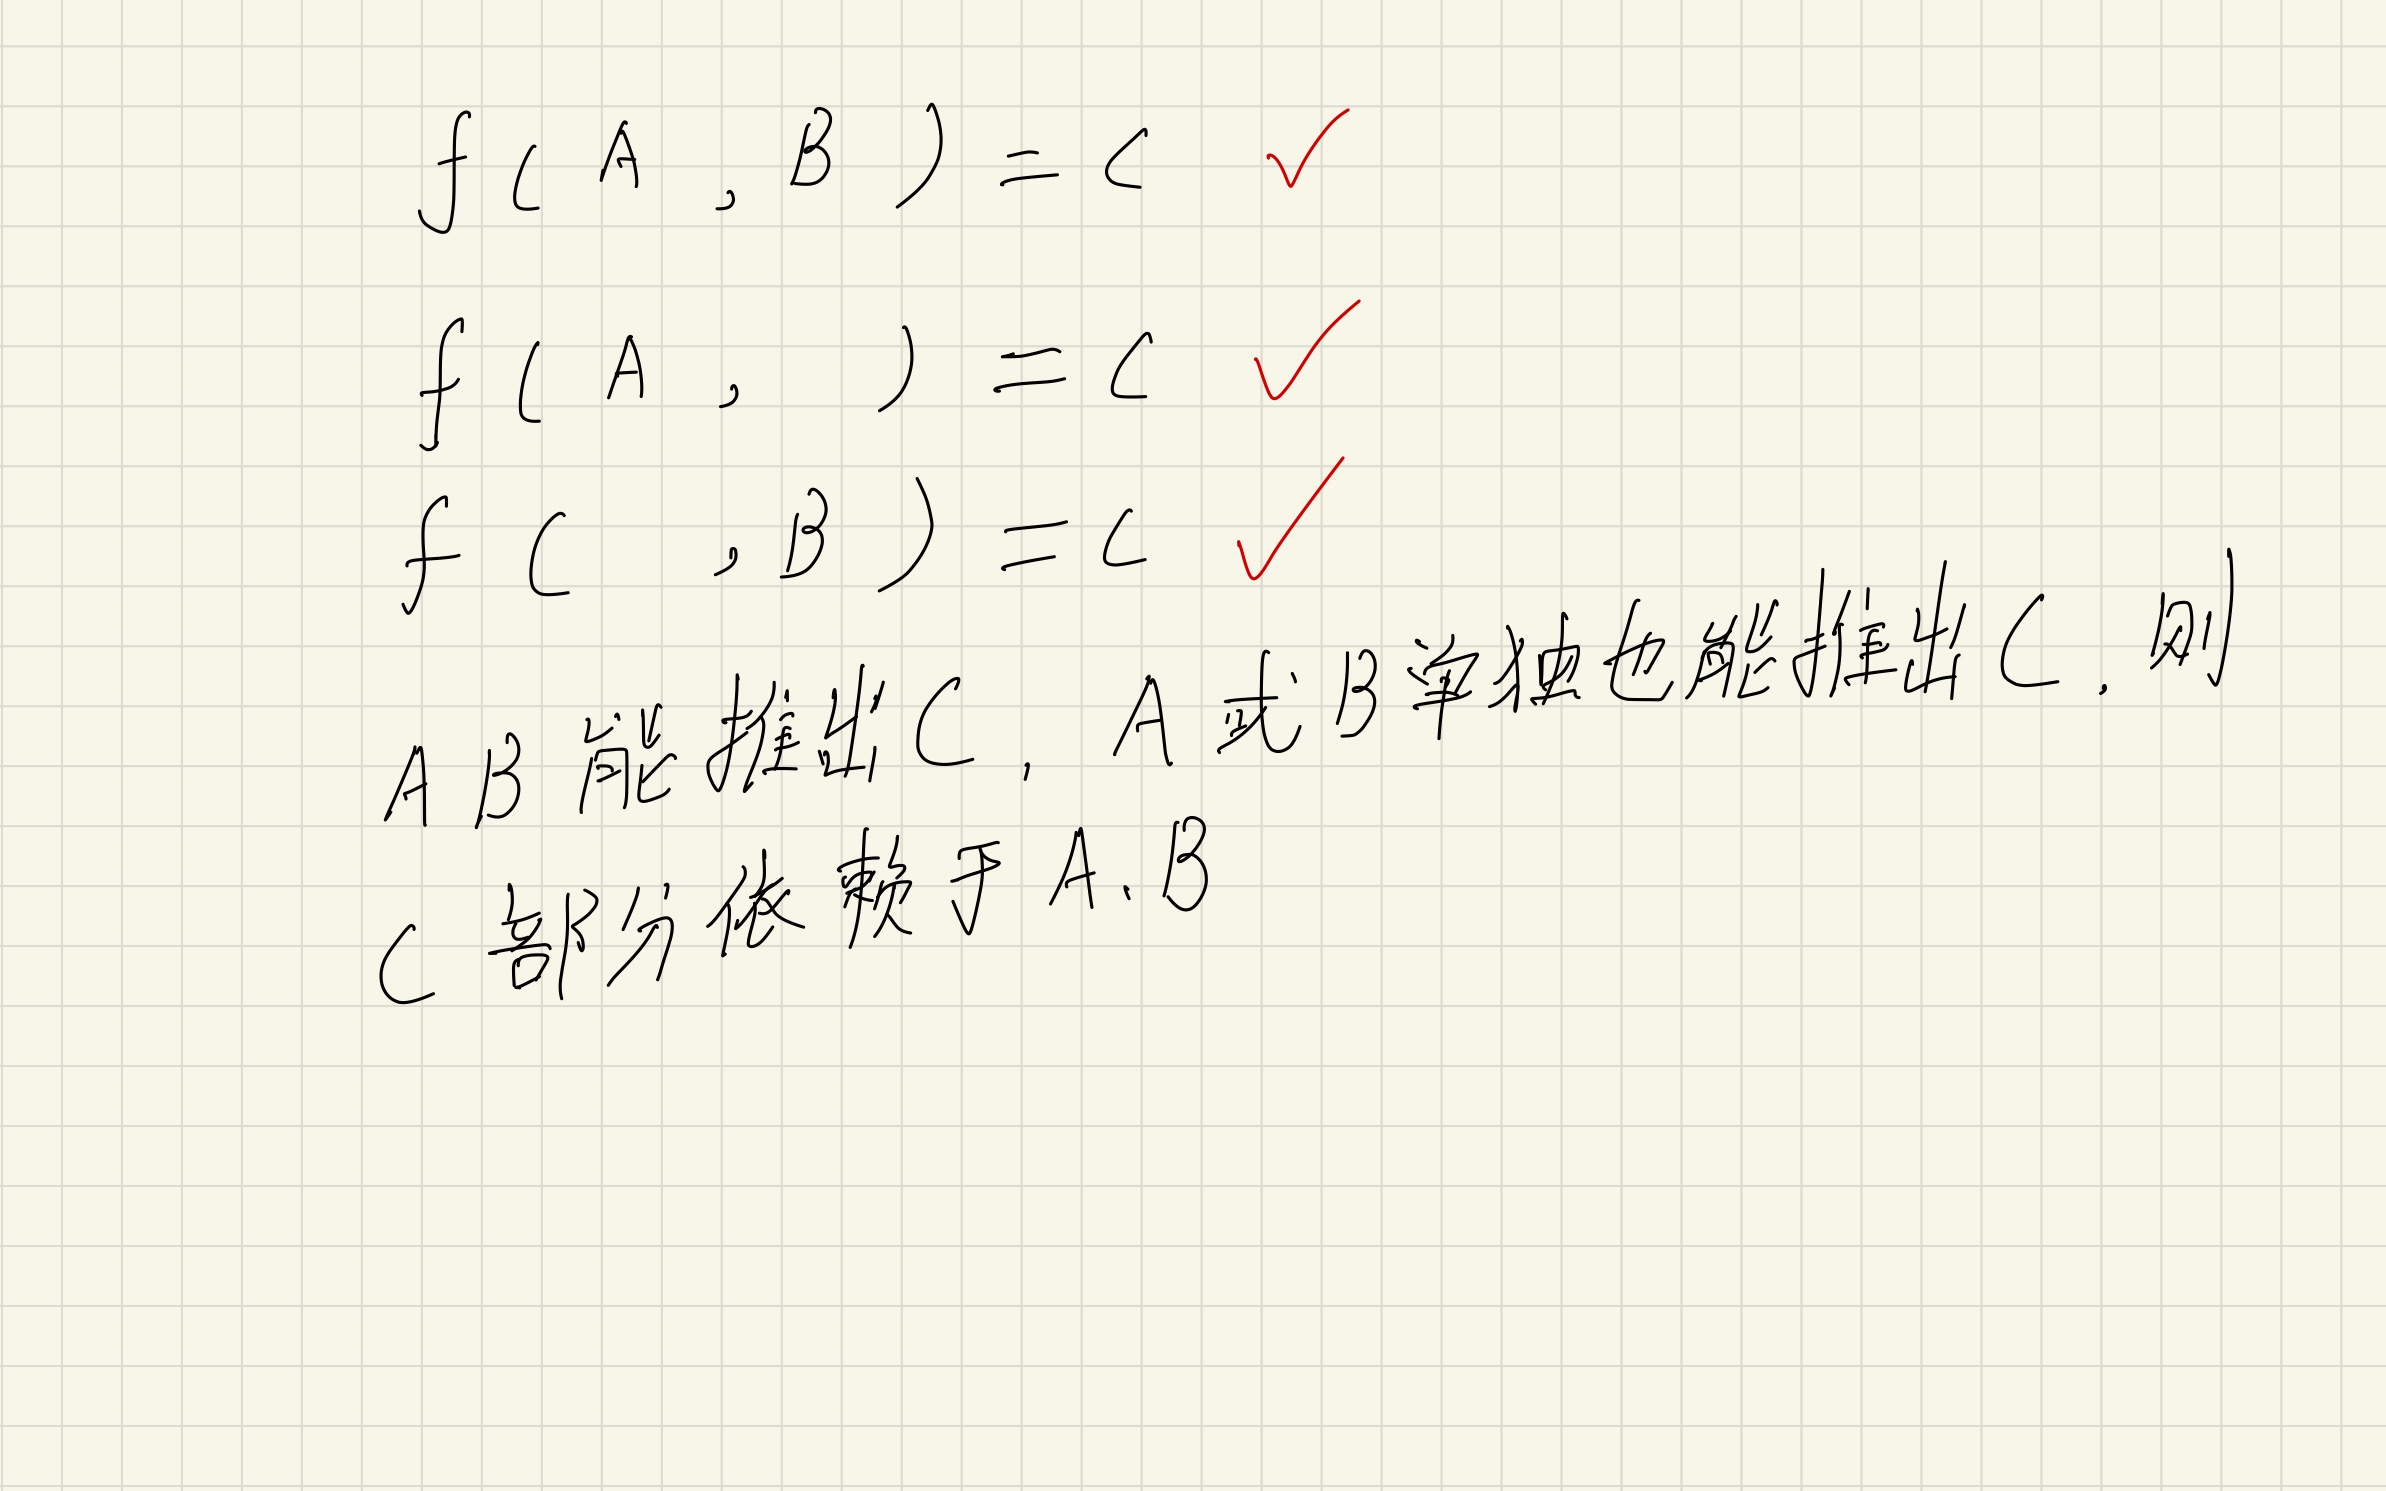 f(A,B)=C ✓
f(A, )=C ✓
f( ,B)=C ✓
AB能推出C,A或B单独也能推出C,则
C部分依赖于A、B